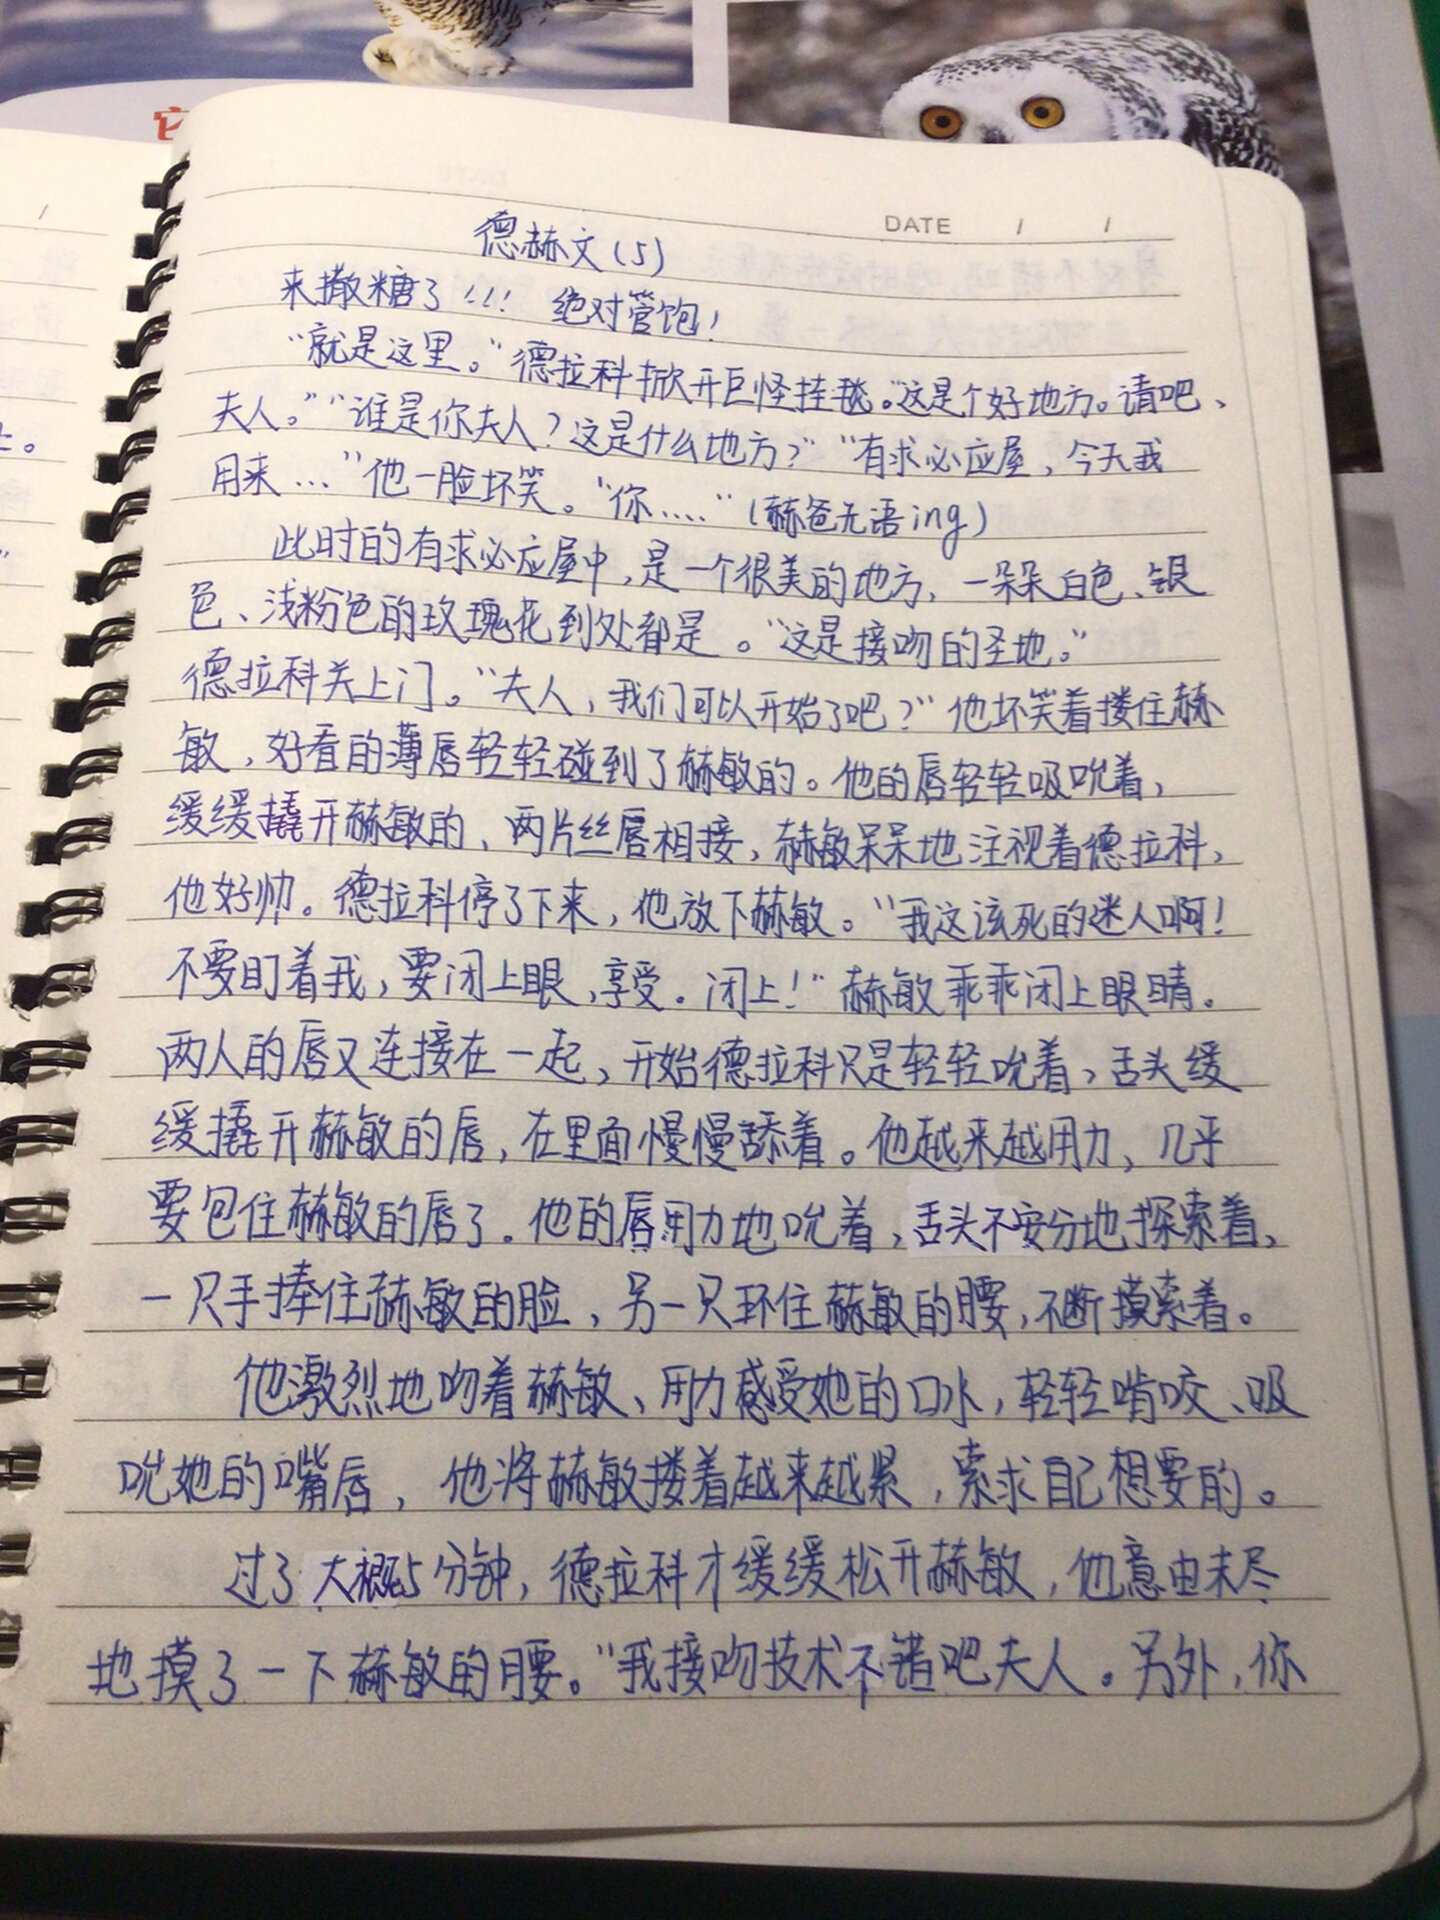 它
DATE / /
德赫文(5)
来撒糖了!!! 绝对管饱!
“就是这里。”德拉科掀开巨怪挂毯。“这是个好地方。请吧、
夫人。”“谁是你夫人?这是什么地方?”“有求必应屋,今天我
用来…”他一脸坏笑。“你....”(赫爸无语ing)
此时的有求必应屋中,是一个很美的地方,一朵朵白色、银
色、浅粉色的玫瑰花到处都是。“这是接吻的圣地。”
德拉科关上门。“夫人,我们可以开始了吧?”他坏笑着搂住赫
敏,好看的薄唇轻轻碰到了赫敏的。他的唇轻轻吸吮着,
缓缓撬开赫敏的、两片丝唇相接,赫敏呆呆地注视着德拉科,
他好帅。德拉科停了下来,他放下赫敏。“我这该死的迷人啊!
不要盯着我,要闭上眼,享受。闭上!”赫敏乖乖闭上眼睛。
两人的唇又连接在一起,开始德拉科只是轻轻吮着,舌头缓
缓撬开赫敏的唇,在里面慢慢舔着。他越来越用力,几乎
要包住赫敏的唇了。他的唇用力地吮着,舌头不安分地探索着,
一只手捧住赫敏的脸,另一只环住赫敏的腰,不断摸索着。
他激烈地吻着赫敏、用力感受她的口水,轻轻啃咬、吸
吮她的嘴唇,他将赫敏搂着越来越紧,索求自己想要的。
过了大概5分钟,德拉科才缓缓松开赫敏,他意由未尽
地摸了一下赫敏的腰。“我接吻技术不错吧夫人。另外,你